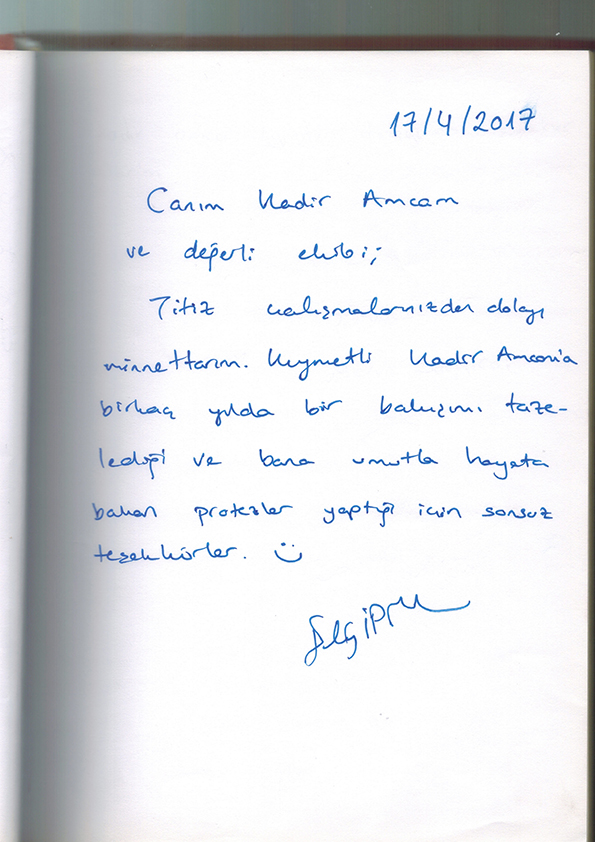 17/4/2017
Canım Kadir Amcam
ve değerli ekibi;
Titiz çalışmalarınızdan dolayı
minnettarım. Kıymetli Kadir Amcama
birkaç yılda bir bakışımı taze-
lediği ve bana umutla hayata
bakan protezler yaptığı için sonsuz
teşekkürler. :)